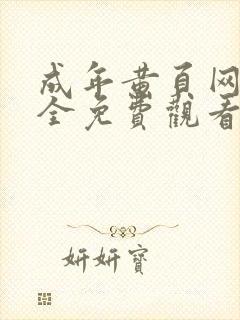 成年黄頁网
全免費觀看
妍妍寶